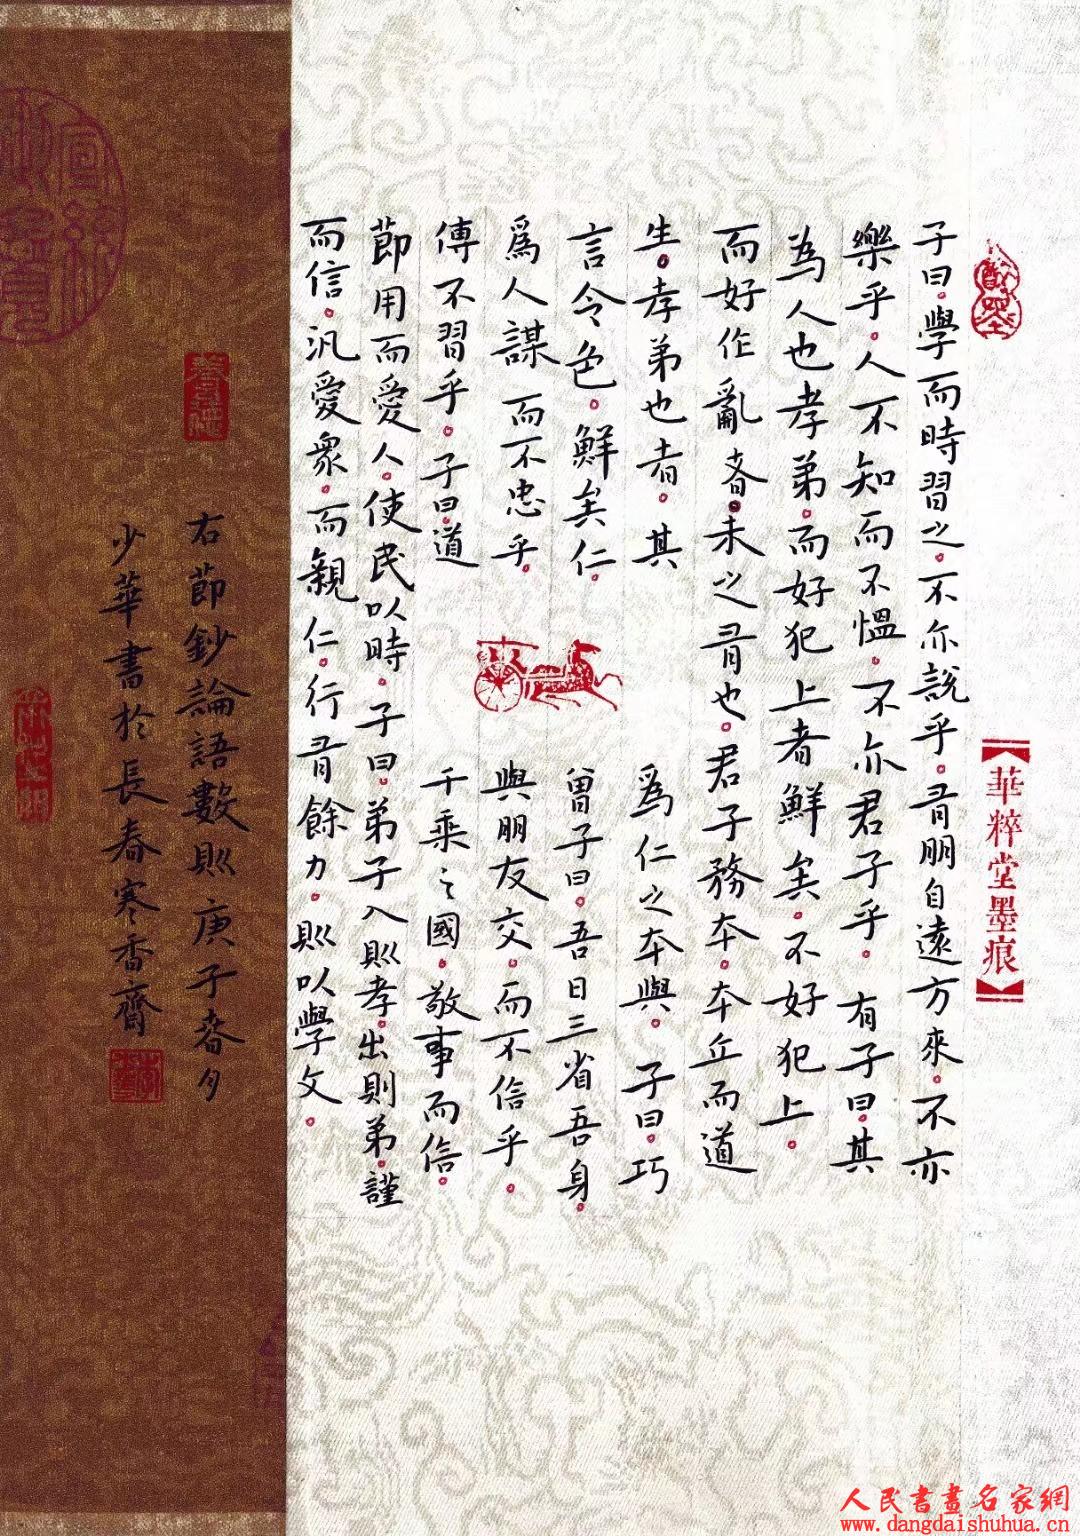 華粹堂墨痕
子曰。學而時習之。不亦說乎。有朋自遠方來。不亦
樂乎。人不知而不慍。不亦君子乎。 有子曰。其
為人也孝弟。而好犯上者鮮矣。不好犯上。
而好作亂者。未之有也。君子務本。本立而道
生。孝弟也者。其 為仁之本與。 子曰。巧
言令色。鮮矣仁。 曾子曰。吾日三省吾身。
爲人謀而不忠乎。 與朋友交。而不信乎。
傳不習乎。子曰。道 千乘之國。敬事而信。
節用而愛人。使民以時。子曰。弟子入則孝。出則弟。謹
而信。汎愛眾。而親仁。行有餘力。則以學文。
右節鈔論語數則庚子春月
少華書於長春寒香齋
人民書畫名家網
www.dangdaishuhua.cn